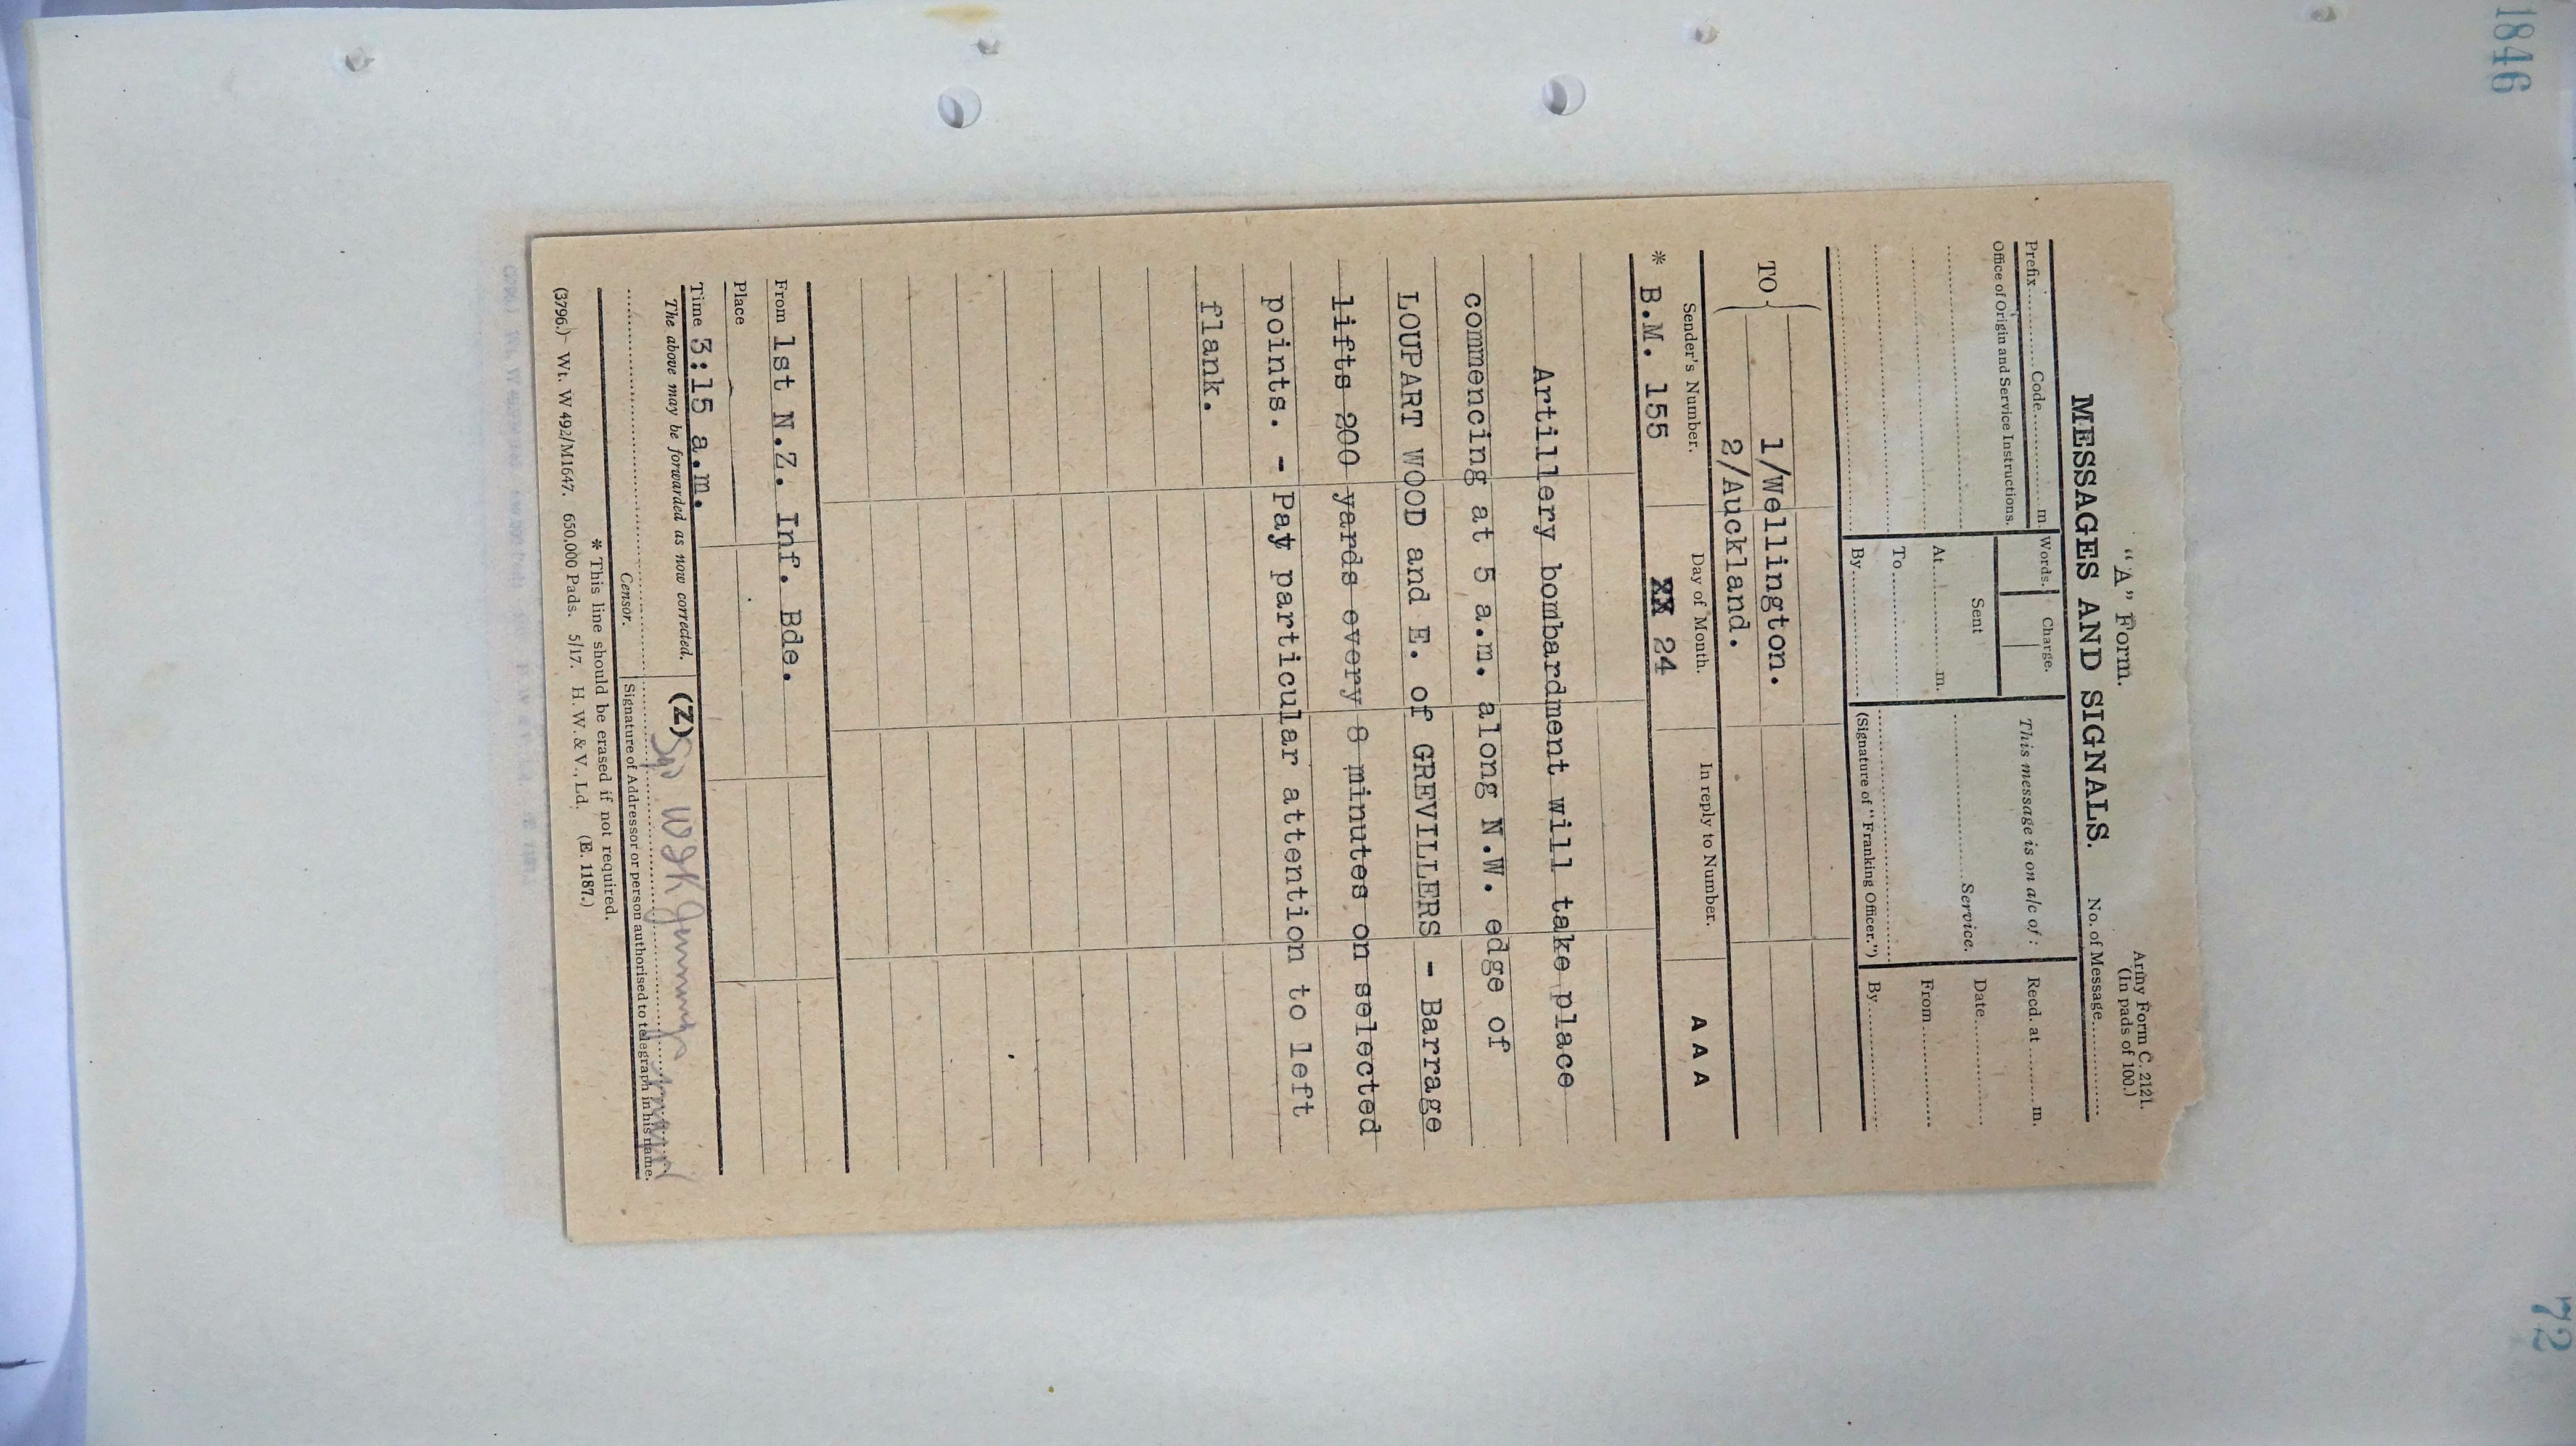 1846
72
"A" Form.
Army Form C. 2121.
(In pads of 100.)
MESSAGES AND SIGNALS.
No. of Message............
Prefix............Code............m.
Words.
Charge.
This message is on a/c of :
Recd. at.........m.
Office of Origin and Service Instructions.
Sent
At............m.
............Service.
Date............
To............
From............
By............
(Signature of "Franking Officer.")
By............
TO
1/Wellington.
2/Auckland.
Sender's Number.
Day of Month.
In reply to Number.
AAA
* B.M. 155
XX 24
Artillery bombardment will take place
commencing at 5 a.m. along N.W. edge of
LOUPART WOOD and E. of GREVILLERS - Barrage
lifts 200 yards every 8 minutes on selected
points. - Pay particular attention to left
flank.
From 1st N.Z. Inf. Bde.
Place
Time 3:15 a.m.
The above may be forwarded as now corrected.
(Z)
Censor.
Signature of Addressor or person authorised to telegraph in his name.
* This line should be erased if not required.
(3796.) Wt. W 492/M1647. 650,000 Pads. 5/17. H. W. & V., Ld. (E. 1187.)